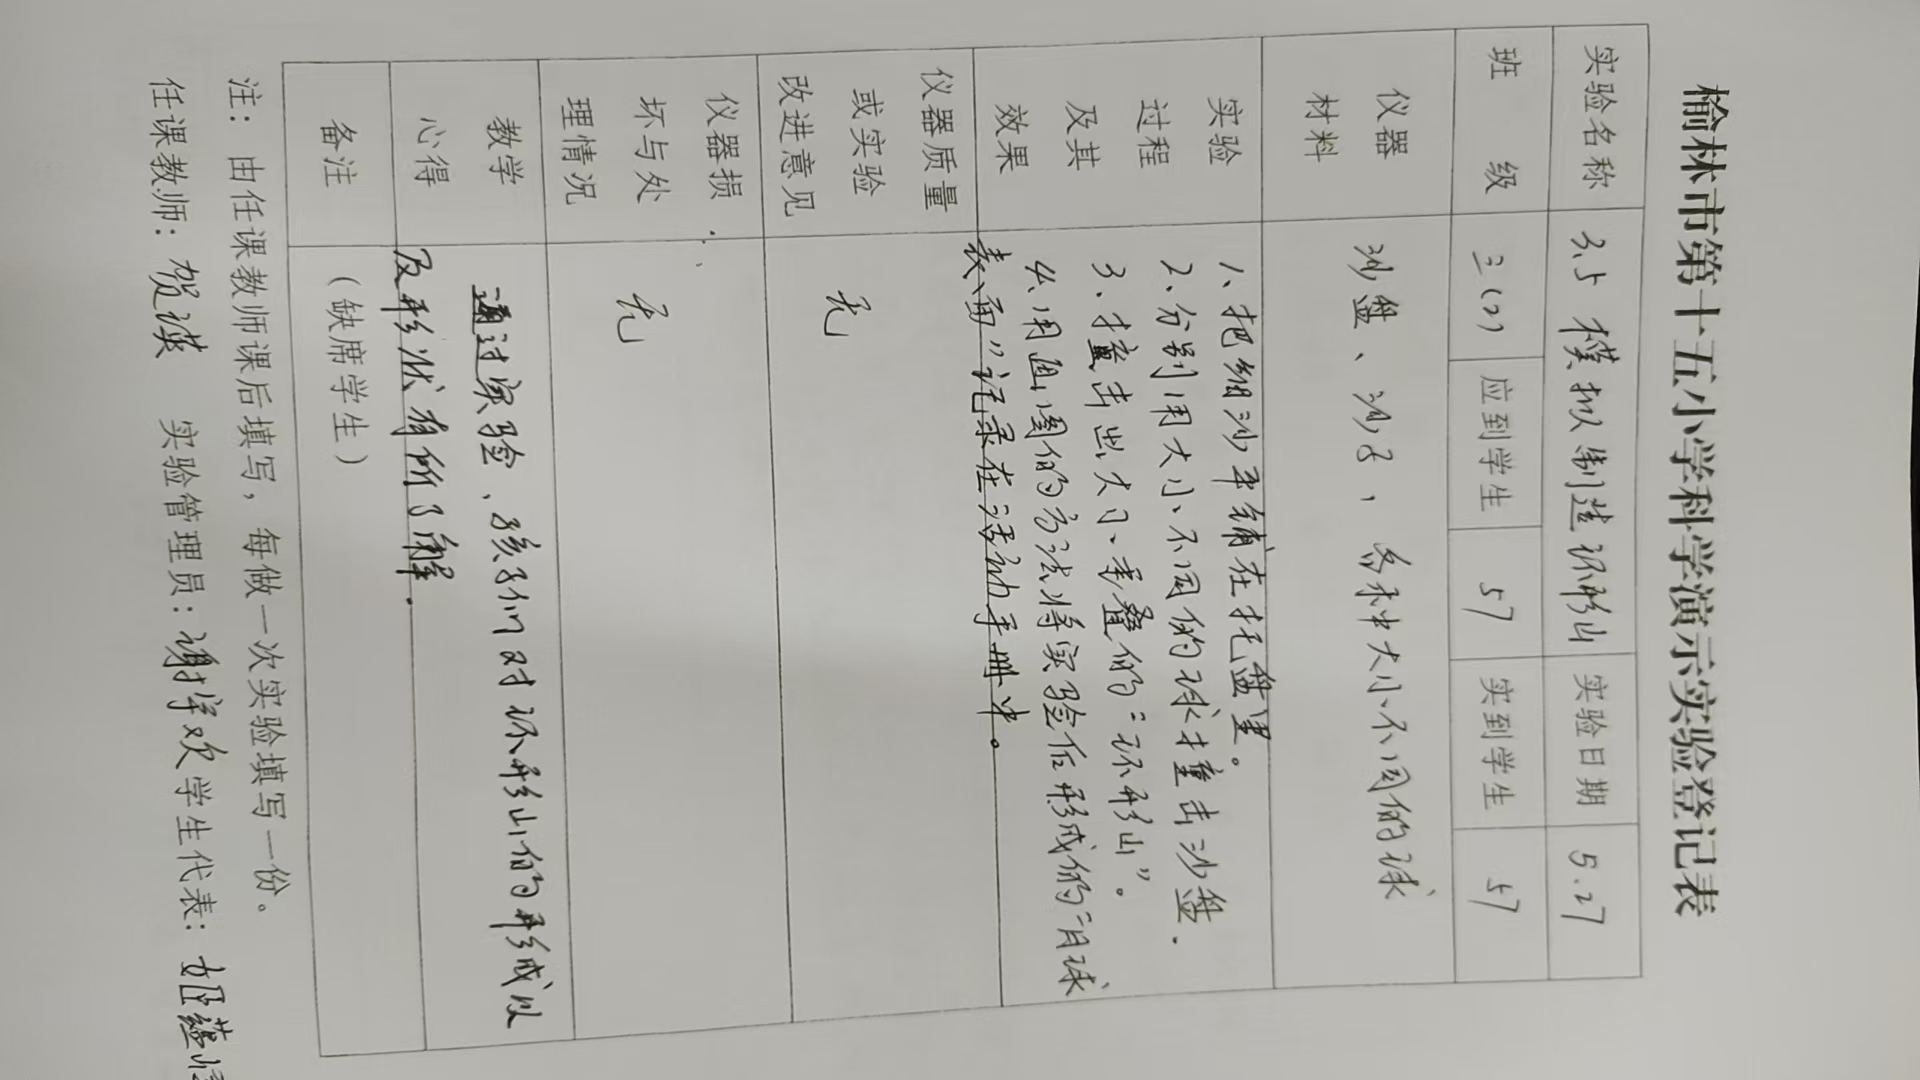 榆林市第十五小学科学演示实验登记表
实验名称 3.5 模拟制造环形山 实验日期 5.27
班 级 三(7) 应到学生 57 实到学生 57
仪器材料 沙盘、沙子，各种大小不同的球
实验过程及其效果
1、把细沙平铺在托盘里。
2、分别用大小不同的球撞击沙盘.
3、撞击出大小、重叠的“环形山”。
4、用画图的方法将实验后形成的“月球
表面”记录在活动手册中。
仪器质量或实验改进意见 无
仪器损坏与处理情况 无
教学心得 通过实验、孩子们对环形山的形成以
及形状有所了解.
备注 (缺席学生)
注：由任课教师课后填写，每做一次实验填写一份。
任课教师：贺瑛 实验管理员：谢梓欢 学生代表：姬蕴